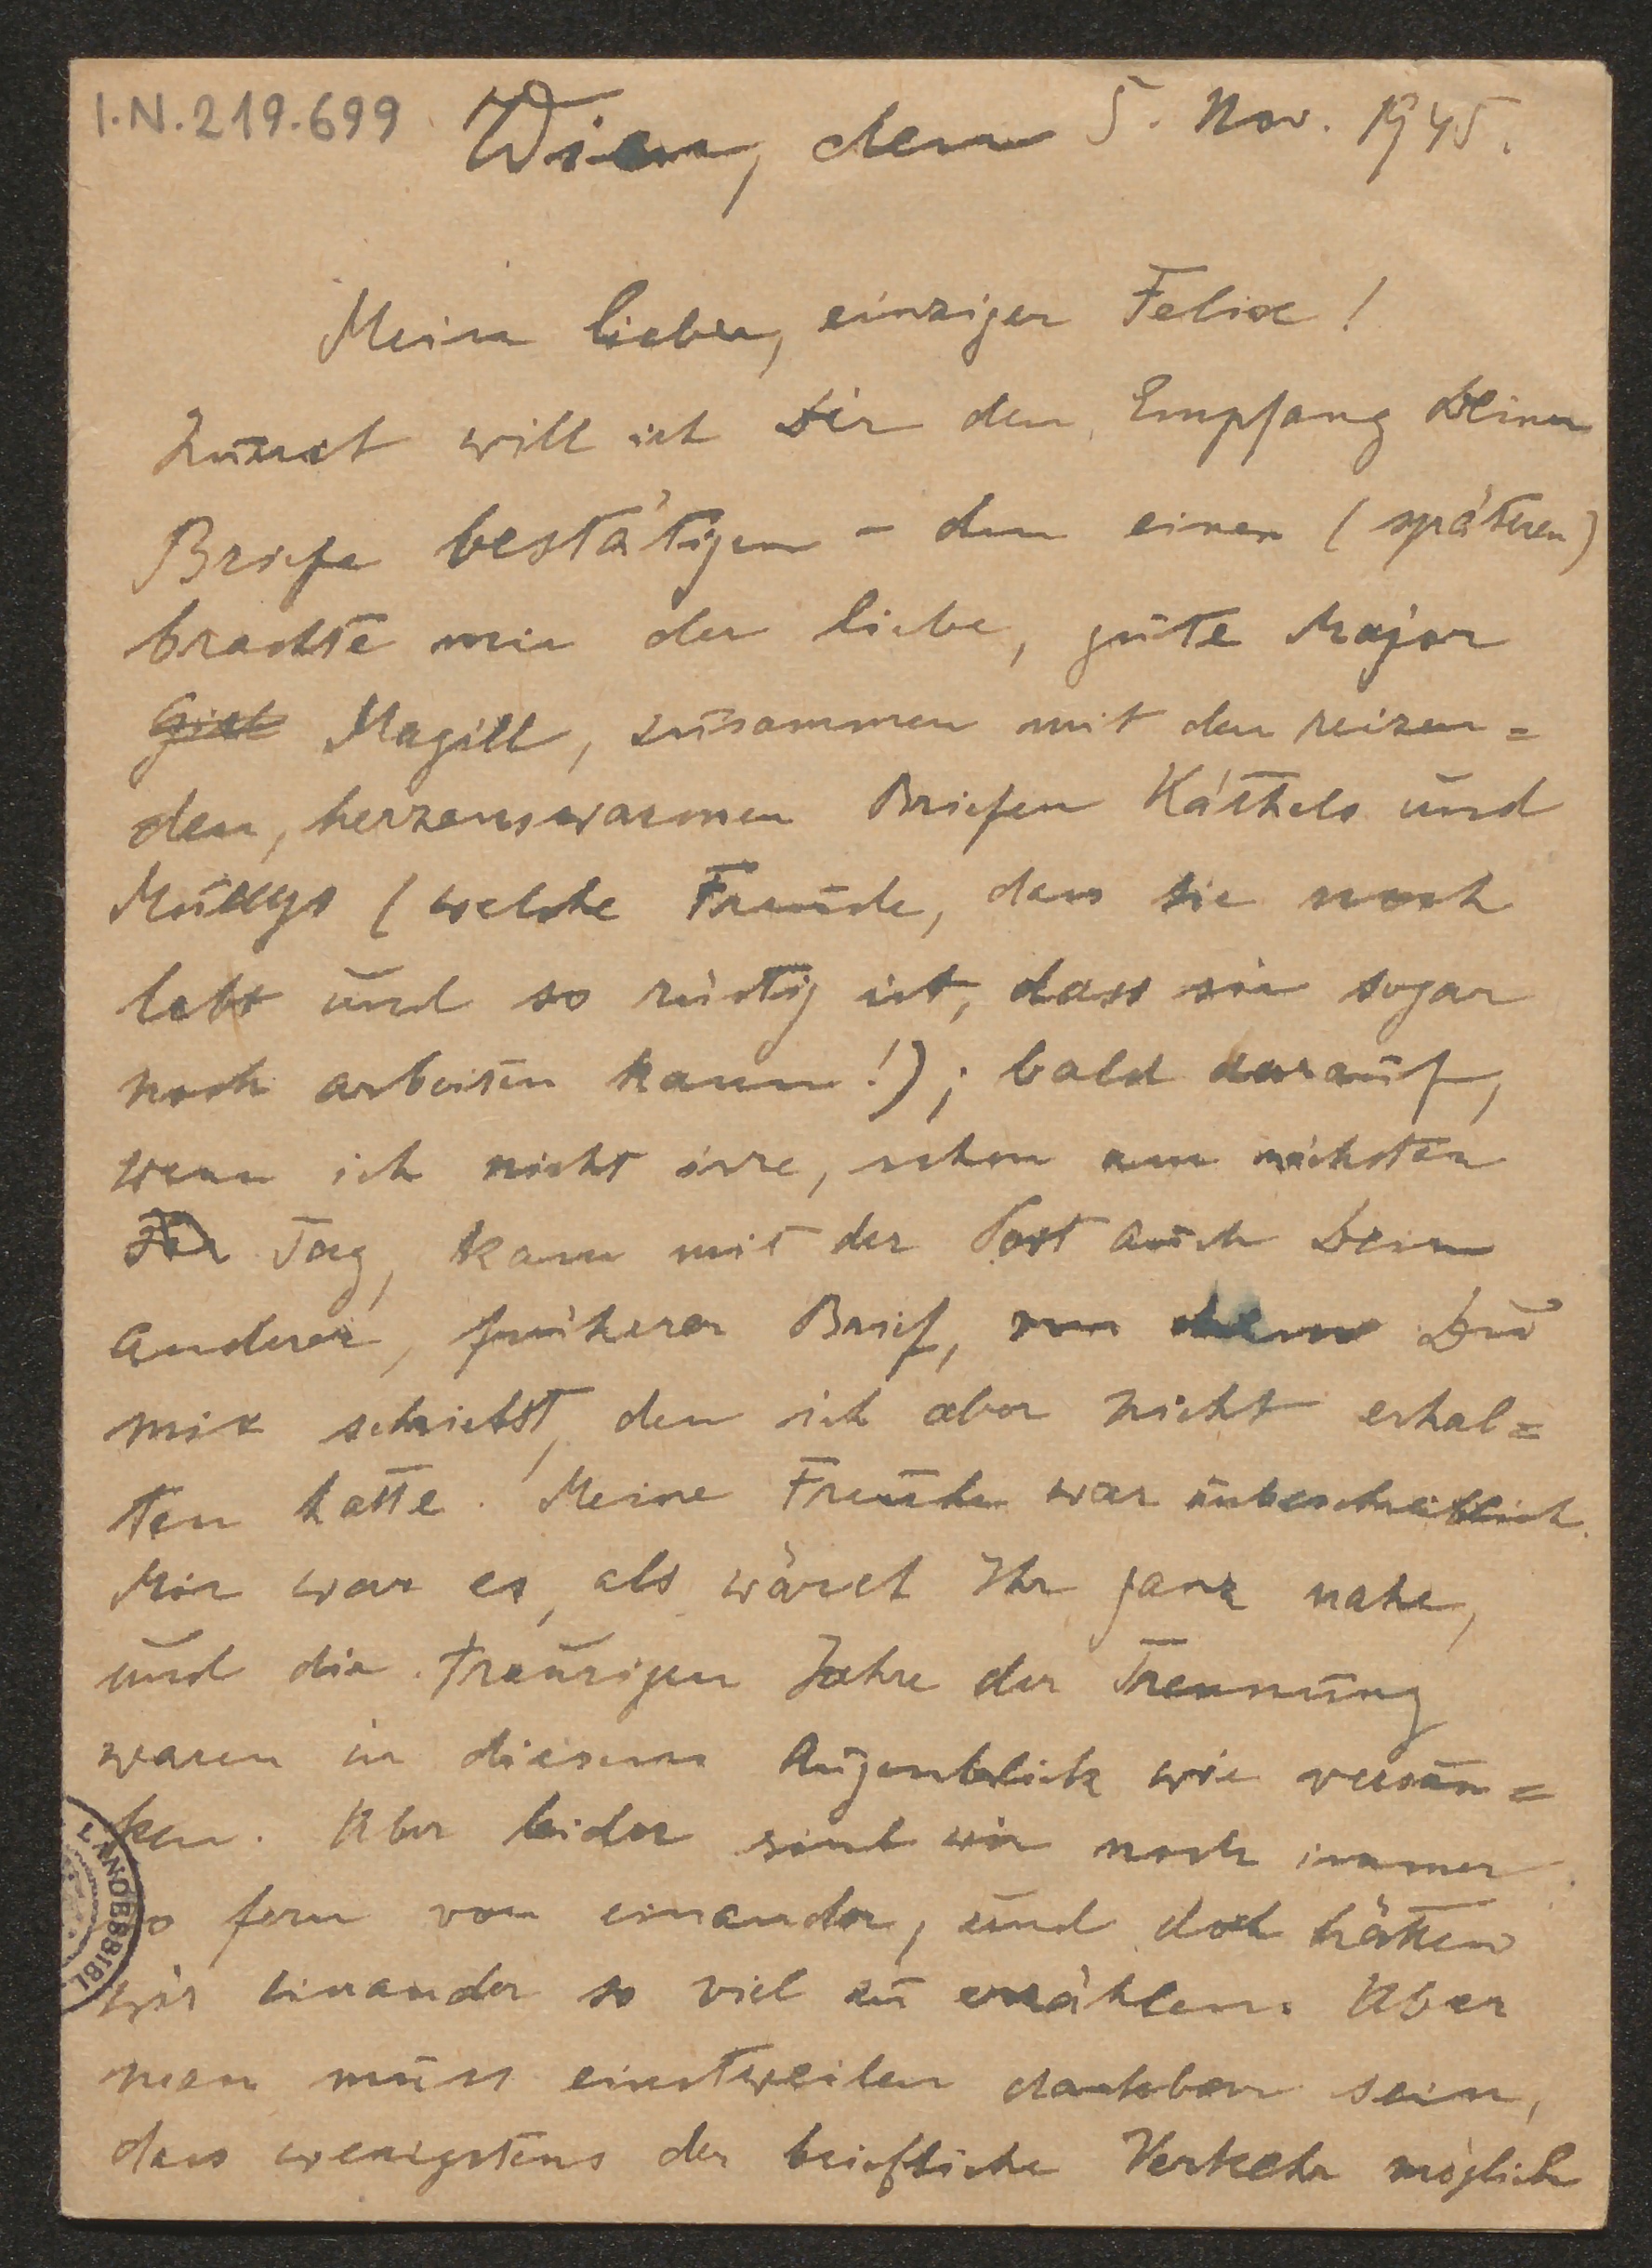 I.N.219.699
Wien, den 5. Nov. 1945.
Mein lieber, einziger Felix!
Zuerst will ich Dir den Empfang Deiner
Briefe bestätigen – den einen (späteren)
brachte mir der liebe, gute Major
Magill, zusammen mit den reizen=
den, herzenswarmen Briefen Käthels und
(welche Freude, dass sie noch
lebt und so rüstig ist, dass sie sogar
noch arbeiten kann!); bald darauf,
wenn ich nicht irre, schon am nächsten
Tag, kam mit der Post auch Dein
anderer, früherer Brief, von dem Du
mir schriebst, den ich aber nicht erhal=
ten hatte. Meine Freude war unbeschreiblich.
Mir war es, als wäret Ihr ganz nahe,
und die traurigen Jahre der Trennung
waren in diesem Augenblick wie versun=
ken. Aber leider sind wir noch immer
so fern von einander, und doch hätten
wir einander so viel zu erzählen. Aber
man muss einstweilen dankbar sein,
dass wenigstens der briefliche Verkehr möglich
LANDESBIBL